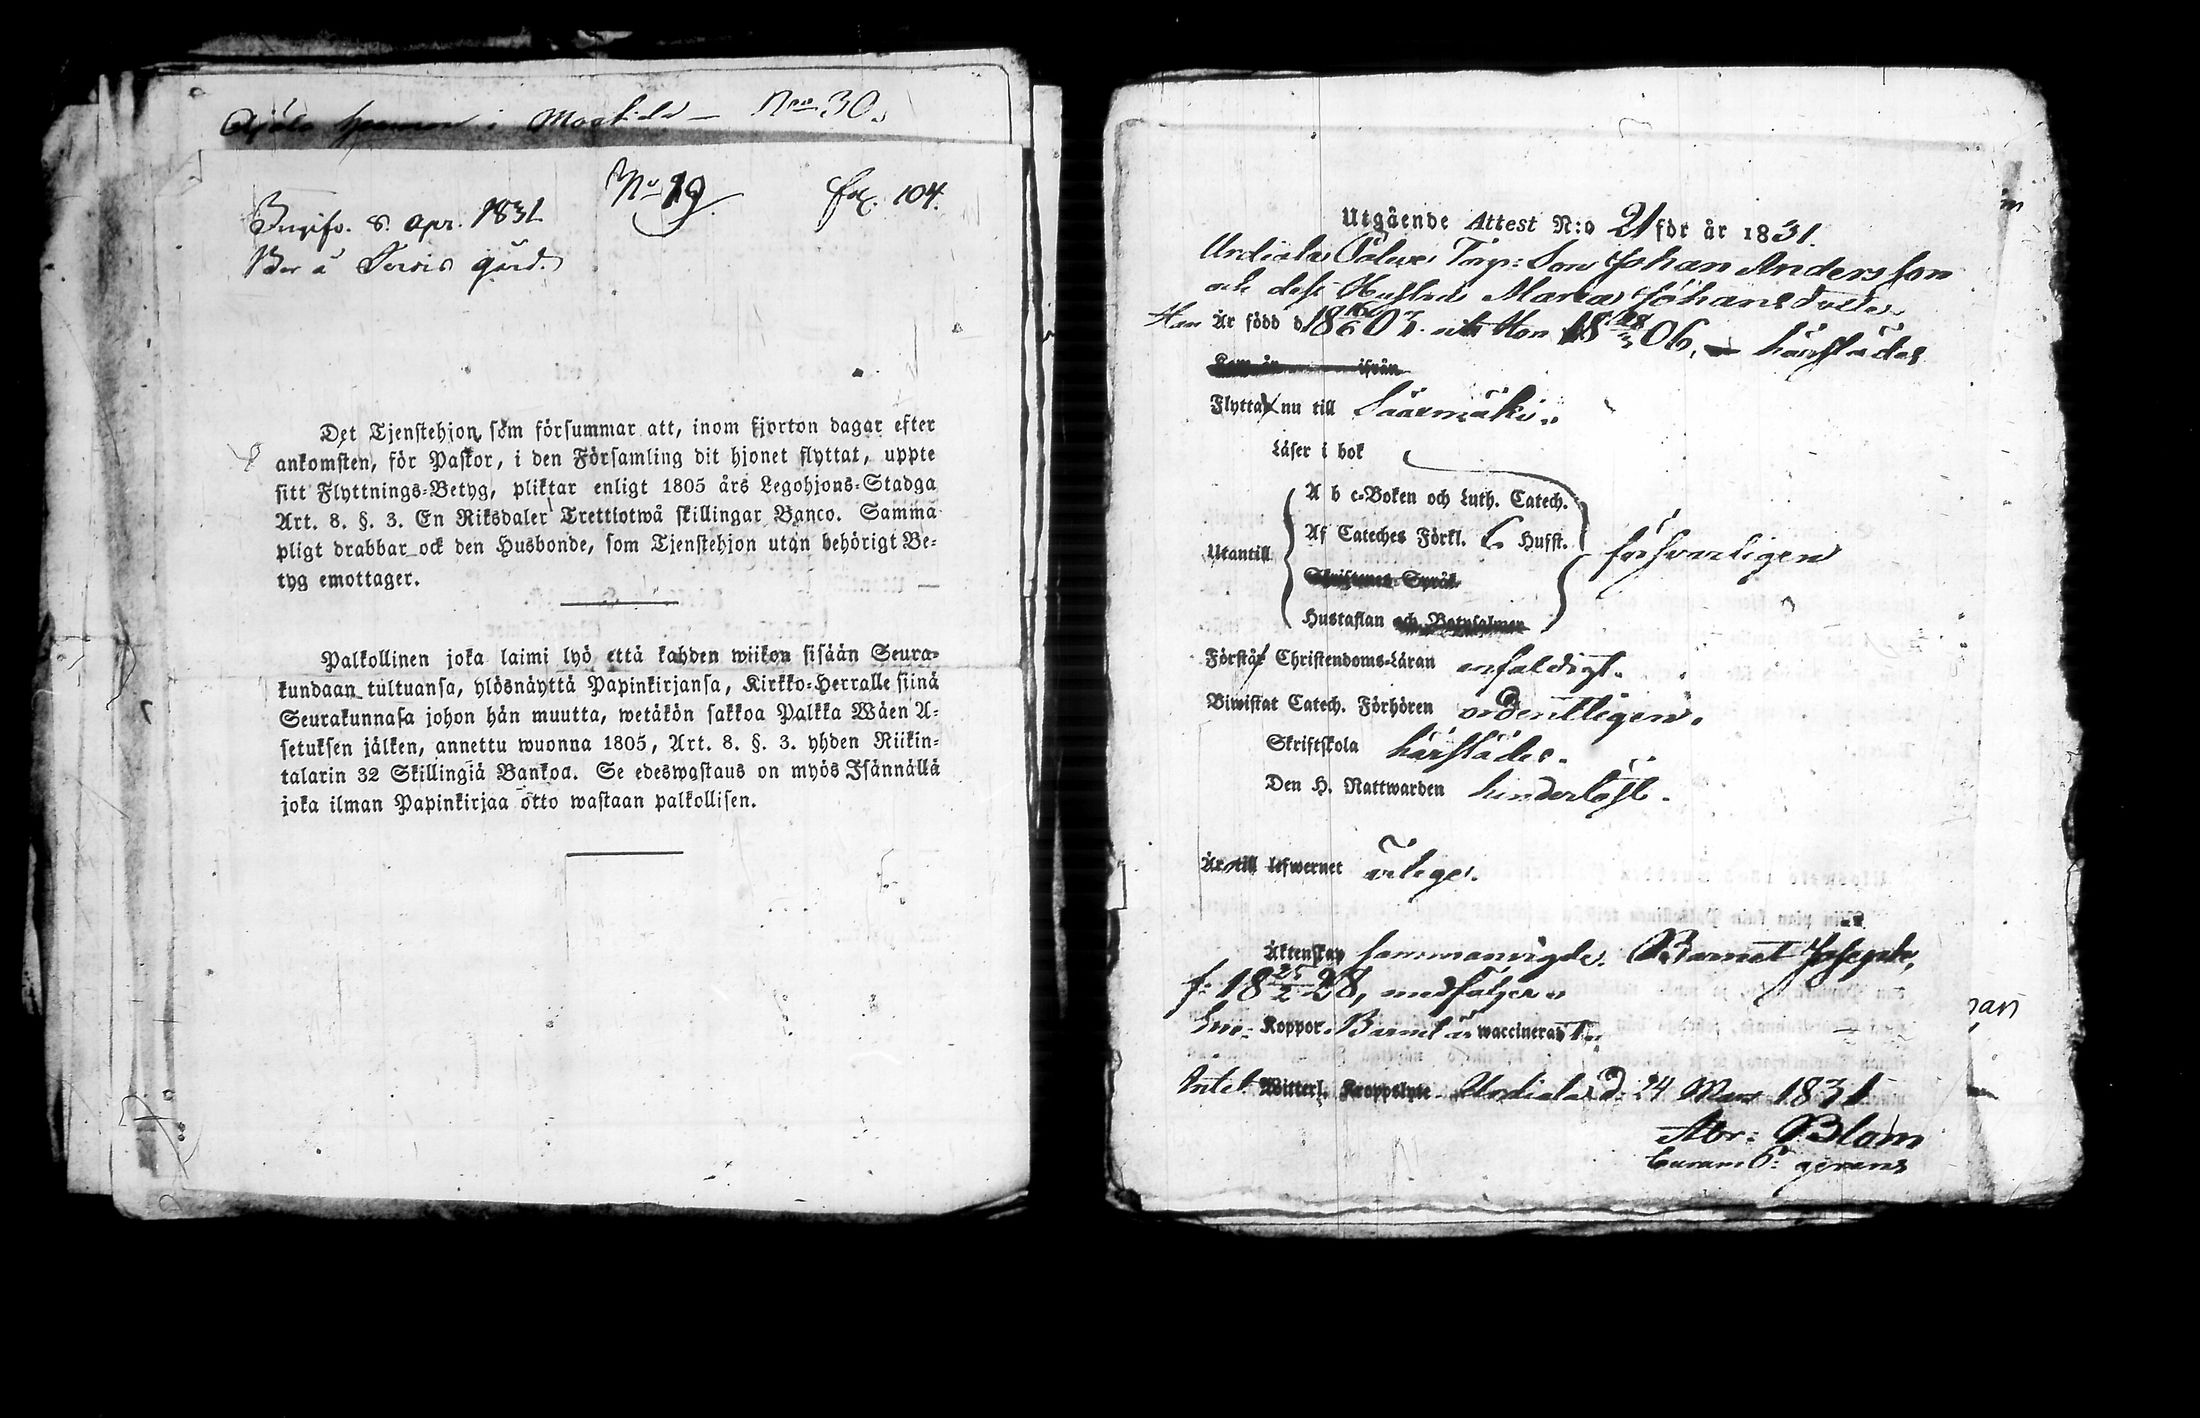 i Maskila — Nro 30.
No 19.
fol. 104.
8 apr. 1831
Bor å gård.
Det Tjenstehjon som försummar att, inom fjorton dagar efter
ankomsten, för Pastor, i den Församling dit hjonet flyttat, uppte
sitt Flyttnings-Betyg, pliktar enligt 1805 års Legohjons-Stadga
Art. 8. §. 3. En Riksdaler Trettiotwå skillingar Banco. Samma
pligt drabbar ock den Husbonde, som Tjenstehjon utan behörigt Be-
tyg emottager.
Palkollinen joka laimi lyö että kahden wiikon sisään Seura-
kundaan tultuansa, ylösnäyttä Papinkirjansa, Kirkko-Herralle siinä
Seurakunnasa johon hän muutta, wetäkön sakkoa Palkka Wäen A-
setuksen jälken, annettu wuonna 1805, Art. 8. §. 3. yhden Riikin-
talarin 32 Skillingiä Bankoa. Se edeswastaus on myös Isännällä
joka ilman Papinkirjaa otto wastaan palkollisen.
Utgående Attest N:o 21 för år 1831.
Urdiala Torp: Son Johan Andersson
och dess Hustru Maria Johansdotter
Han Är född d 18 16/6 03. och Hon 18 28/3 06, härstädes
Kom år ifrån
Flyttar nu till Säärmäki
Läser i bok
A b c-Boken och Luth. Catech.
Utantill
Af Cateches Förkl. Husst.
försvarligen
Skriftenes Språk
Hustaflan och Botpsalmer
Förstår Christendoms-Läran enfaldigt.
Biwistat Catech. Förhören ordentligen.
Skriftskola härstädes.
Den H. Nattwarden hinderlöst.
Är till lefwernet ärlige.
Äktenskap sammanvigde. Barnet Joseph,
f: 18 25/2 28, medföljer
Koppor. Barnet är waccinerat
Intet Witterl. Kroppslyte Urdiala d. 24 Mars 1831
Abr: Blom
Curam P: gerens